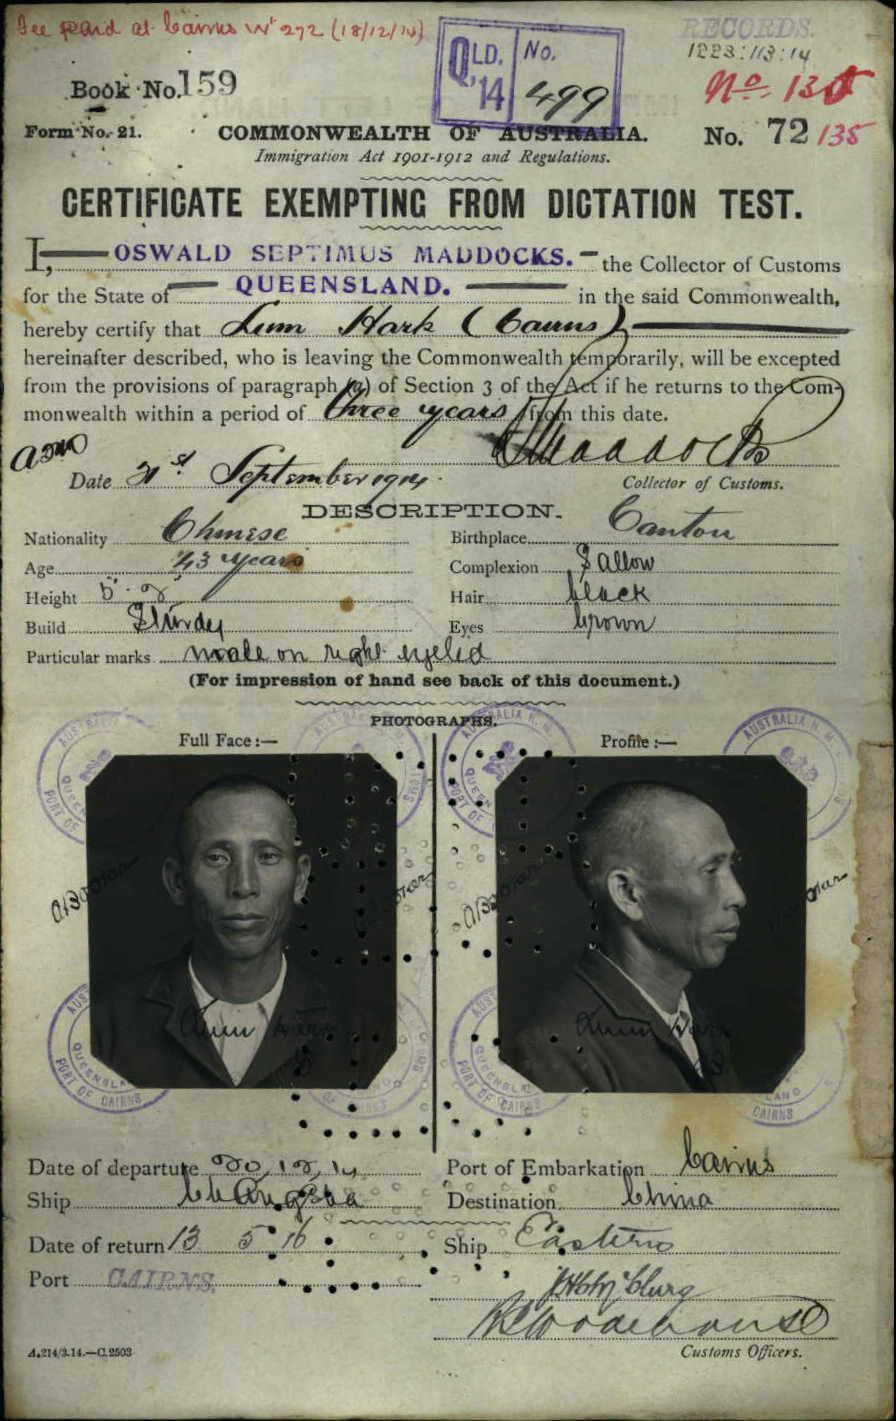 See card at Cairns No 272 (18/12/14)
RECORDS.
QLD. No.
'14 499
Book No. 159
No. 135
Form No. 21.
COMMONWEALTH OF AUSTRALIA.
No. 72 135
Immigration Act 1901-1912 and Regulations.
CERTIFICATE EXEMPTING FROM DICTATION TEST.
I, OSWALD SEPTIMUS MADDOCKS. the Collector of Customs
for the State of QUEENSLAND. in the said Commonwealth,
hereby certify that Lum Hark (Cairns)
hereinafter described, who is leaving the Commonwealth temporarily, will be excepted
from the provisions of paragraph (a) of Section 3 of the Act if he returns to the Com-
monwealth within a period of three years from this date.
OSMaddocks
Date 21st September 1914.
Collector of Customs.
DESCRIPTION.
Nationality Chinese
Birthplace Canton
Age 43 years
Complexion Sallow
Height 5'. 2"
Hair black
Build Sturdy
Eyes brown
Particular marks mole on right eyelid
(For impression of hand see back of this document.)
PHOTOGRAPHS.
Full Face :—
Profile :—
Lum Hark
Lum Hark
PORT OF CAIRNS
Date of departure 20,12,14
Port of Embarkation Cairns
Ship Changsha
Destination China
Date of return 13 5 16
Ship Eastern
Port CAIRNS.
Woodhouse
Customs Officers.
A.214/3.14.—C.2503